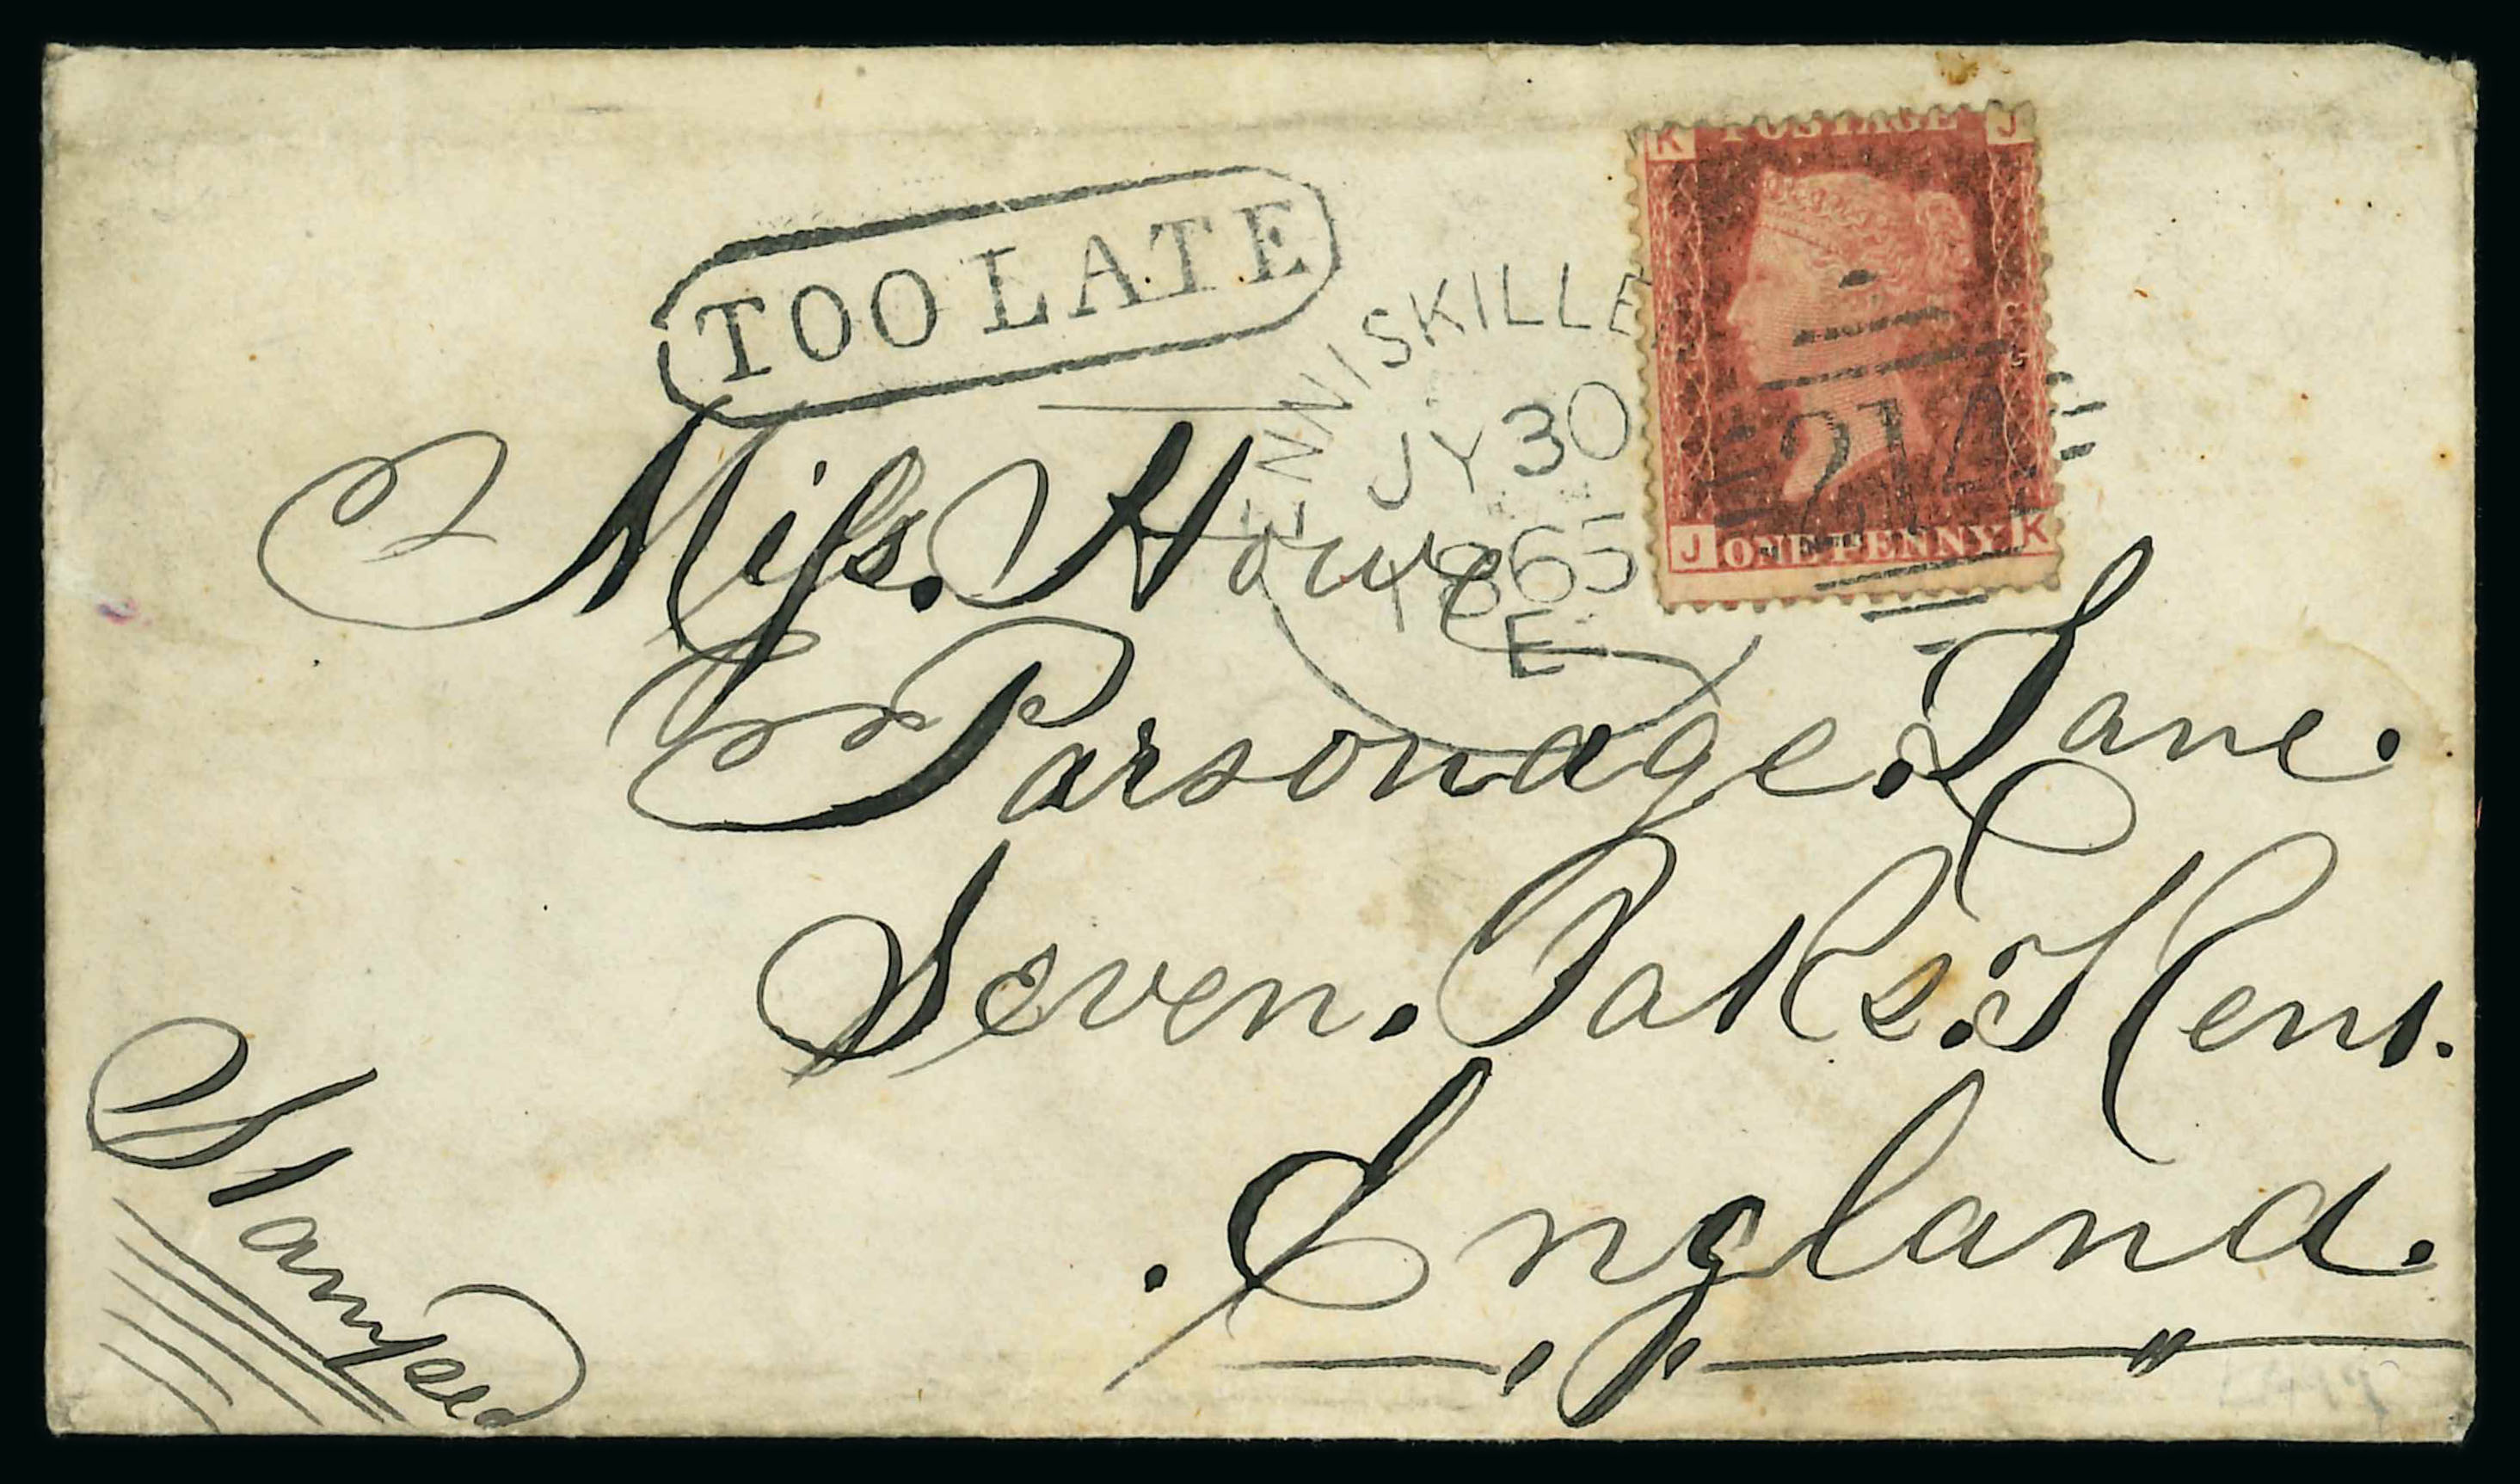 K POSTAGE J
TOO LATE
ENNISKILLE
JY 30
1865
E
214
J ONE PENNY K
Miſs. Howe
Parsonage. Lane.
Seven. Oaks. Kent.
. England.
Stamped